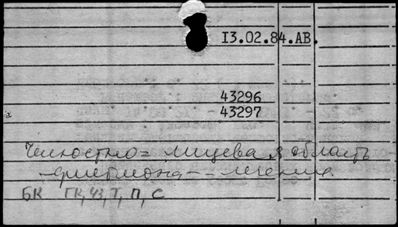 13.02.84.АВ.
43296
43297
Челюстно= лицевая область
-флегмона-- лечение
БК ГК, ЧЗ, Т, П, С